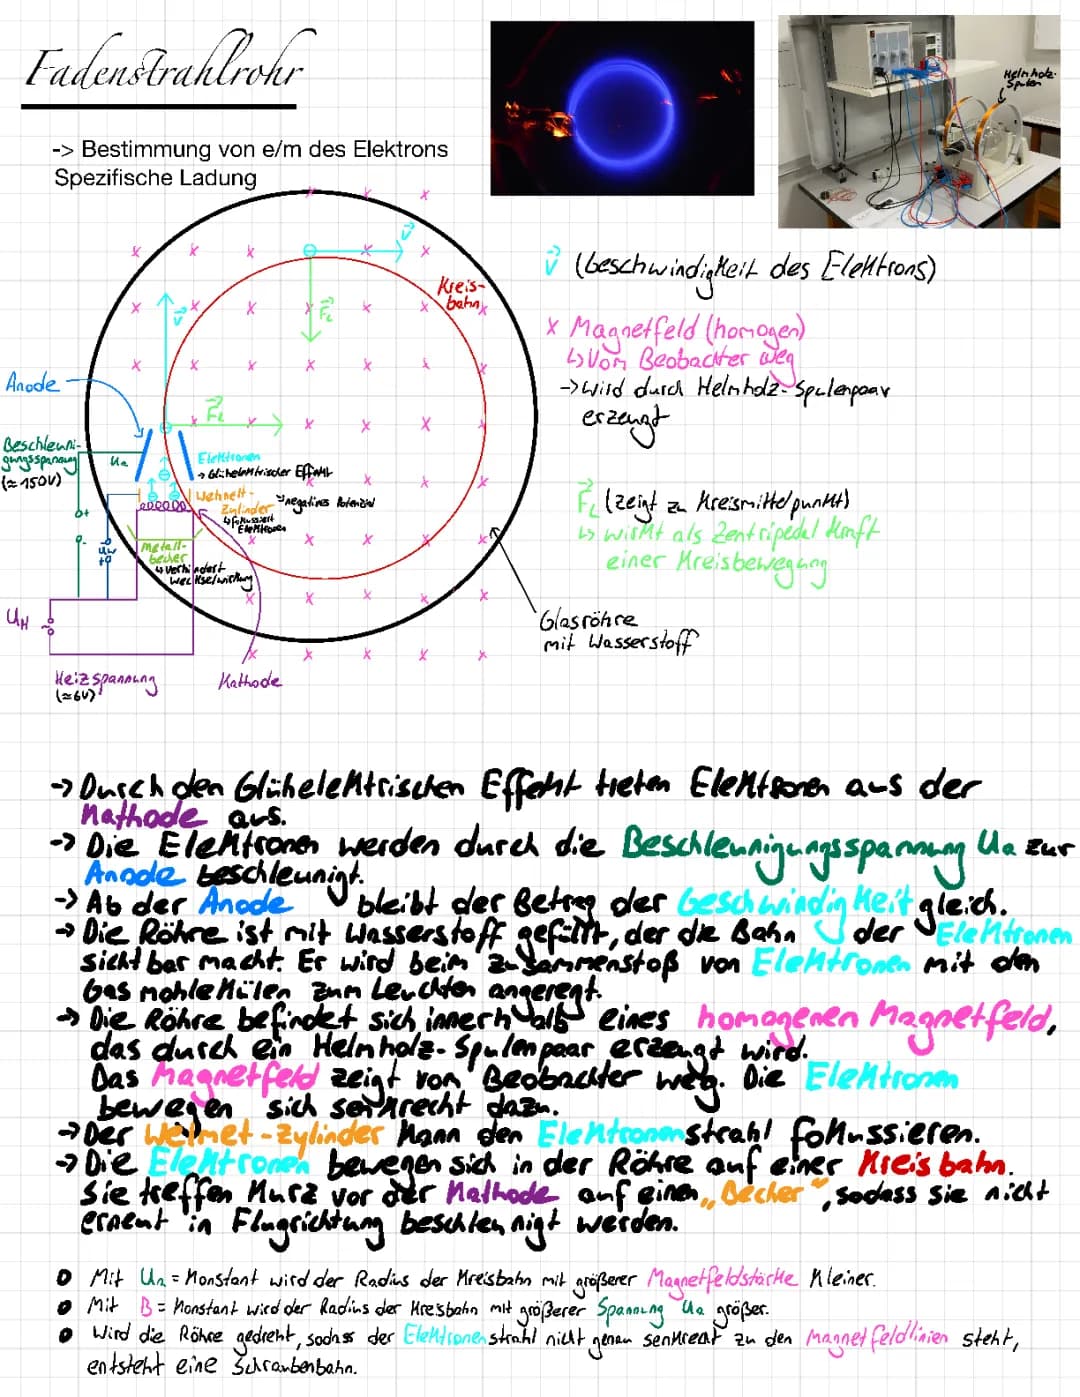 Fadenstrahlrohr
Helmholz-
Spulen
-> Bestimmung von e/m des Elektrons
Spezifische Ladung
v (Geschwindigkeit des Elektrons)
Kreis-
bahn
x Magnetfeld (homogen)
↳ Vom Beobachter weg
-> wird durch Helmholz-Spulenpaar
erzeugt
v
v
F_L
F_L
Anode
Beschleuni-
gungsspannung
(≈150V)
Ua
Elektronen
-> Glühelektrischer Effekt
Wehnelt-
Zylinder
↳ fokussiert
Elektronen
negatives Potenzial
Metall-
becher
↳ verhindert
Wechselwirkung
Uw
F_L (zeigt zu Kreismittelpunkt)
↳ wirkt als Zentripedal Kraft
einer Kreisbewegung
Glasröhre
mit Wasserstoff
U_H
Heizspannung
(≈6V)
Kathode
-> Durch den Glühelektrischen Effekt treten Elektronen aus der
Kathode aus.
-> Die Elektronen werden durch die Beschleunigungsspannung Ua zur
Anode beschleunigt.
-> Ab der Anode bleibt der Betrag der Geschwindigkeit gleich.
-> Die Röhre ist mit Wasserstoff gefüllt, der die Bahn der Elektronen
sichtbar macht. Er wird beim Zusammenstoß von Elektronen mit den
Gasmohlekülen zum Leuchten angeregt.
-> Die Röhre befindet sich innerhalb eines homogenen Magnetfeld,
das durch ein Helmholz-Spulenpaar erzeugt wird.
Das Magnetfeld zeigt vom Beobachter weg. Die Elektronen
bewegen sich senkrecht dazu.
-> Der Welmet-Zylinder kann den Elektronenstrahl fokussieren.
-> Die Elektronen bewegen sich in der Röhre auf einer Kreisbahn.
Sie treffen kurz vor der Kathode auf einen „Becher“, sodass sie nicht
erneut in Flugrichtung beschleunigt werden.
Mit Ua = Konstant wird der Radius der Kreisbahn mit größerer Magnetfeldstärke kleiner.
Mit B = Konstant wird der Radius der Kreisbahn mit größerer Spannung Ua größer.
Wird die Röhre gedreht, sodass der Elektronenstrahl nicht genau senkrecht zu den Magnetfeldlinien steht,
entsteht eine Schraubenbahn.